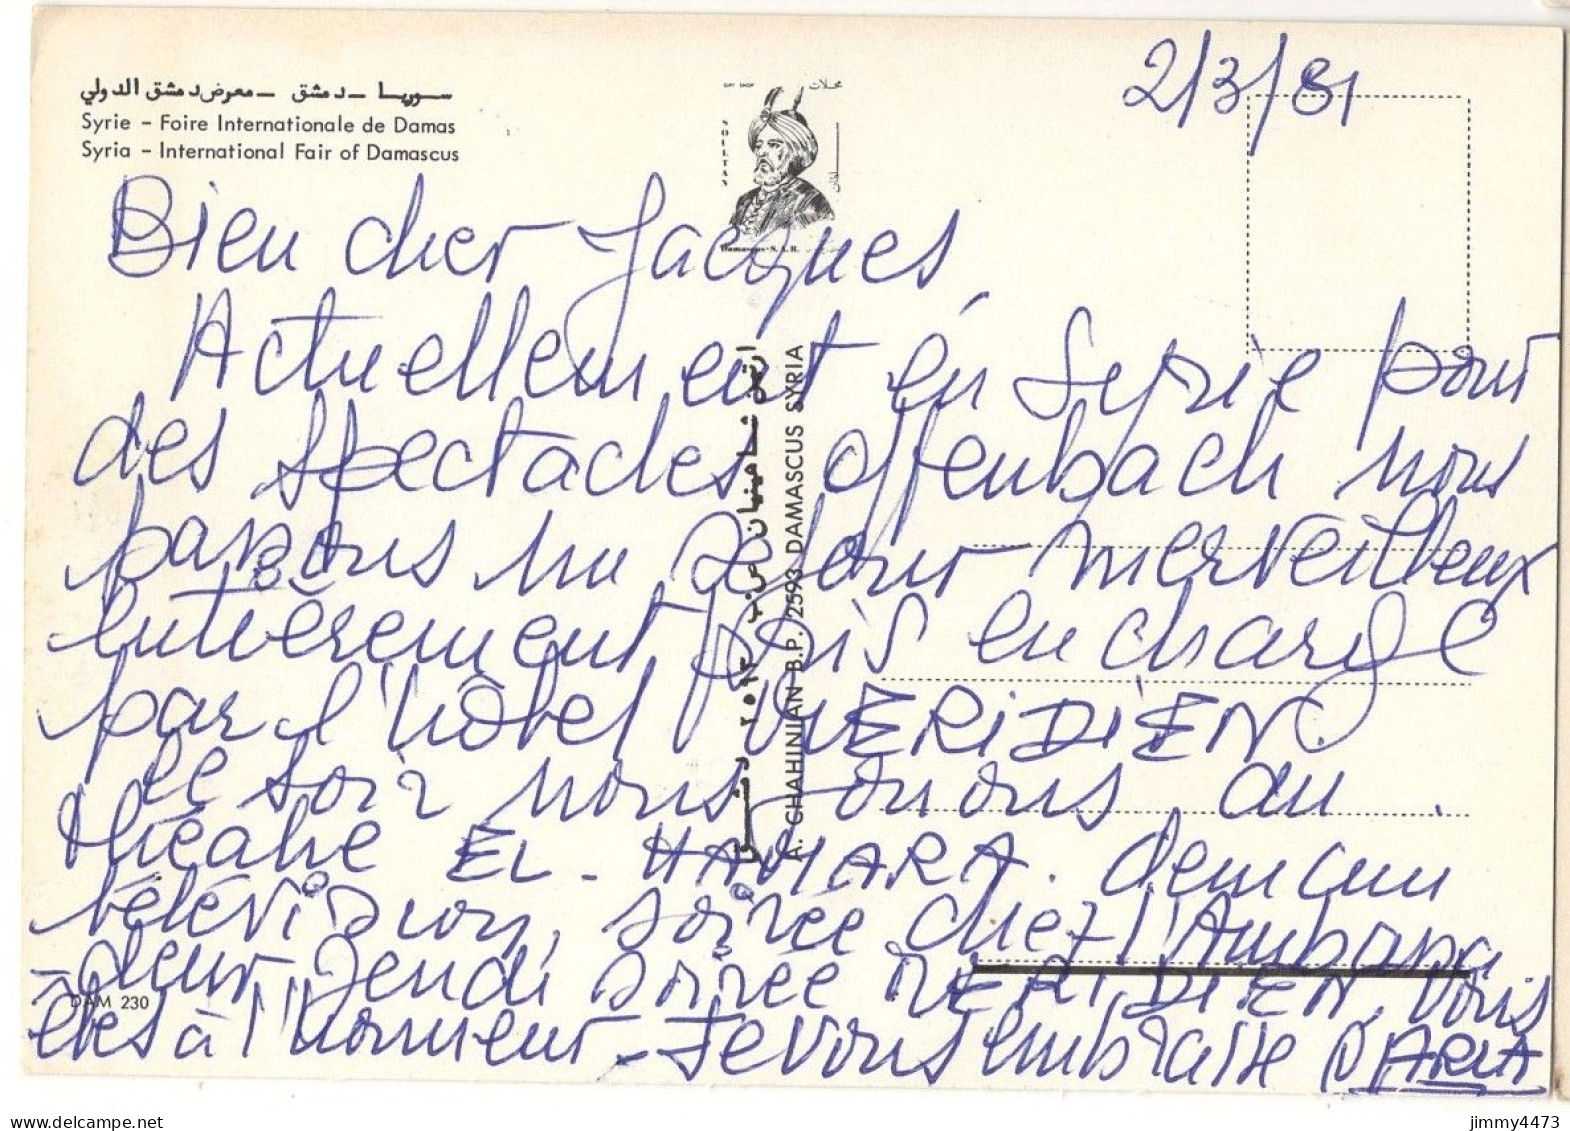 2/3/81
سوريا - دمشق - معرض دمشق الدولي
Syrie - Foire Internationale de Damas
Syria - International Fair of Damascus
محلات
Damascus-S.A.R.
Bien cher Jacques,
Actuellement en Syrie pour
des spectacles Offenbach nous
passons un séjour merveilleux
entièrement pris en charge
par l'hôtel MERIDIEN.
Le soir nous jouons au
théâtre EL-HAMARA. demain
télévision, soirée chez l'Ambassa
deur Jeudi soirée MERIDIEN. Vous
êtes à l'honneur - Je vous embrasse MARIA
ارتين شاهينيان ص.ب ٢٥٩٣ دمشق
A. CHAHINIAN B.P. 2593 DAMASCUS SYRIA
DAM 230
delcampe.net
jimmy4473